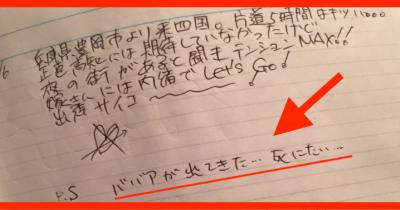 /6 兵庫県豊岡市より来四国。片道5時間はキツい。。。
正直高知には期待していなかったけど
夜の街があると聞きテンションMAX!!
嫁さんには内緒でLet's Go!
出張サイコー
P.S ババアが出てきた… 死にたい…